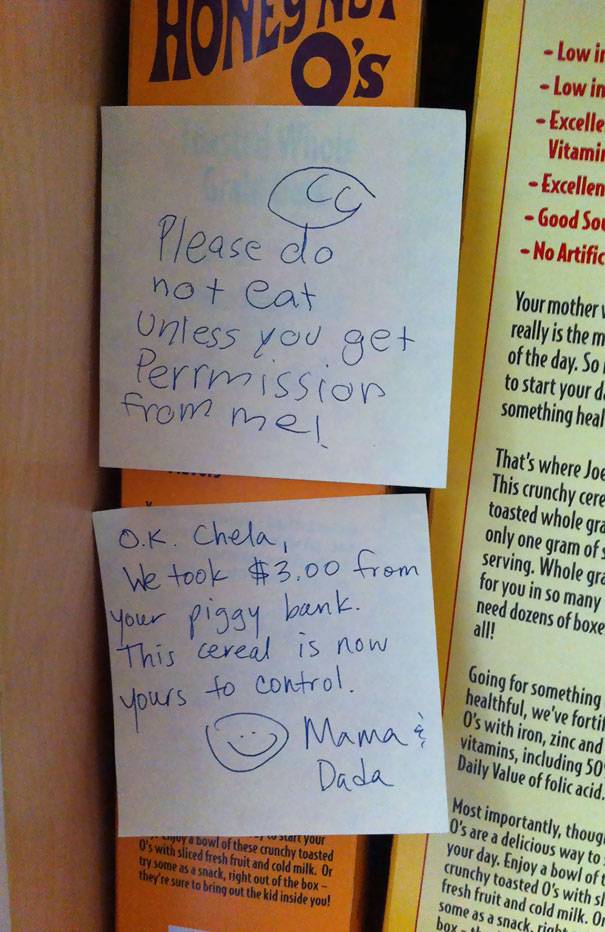 HONEY NUT
O's
Toasted Whole
Please do
not eat
Unless you get
Perrmission
from me!
O.K. Chela,
We took $3.00 from
your piggy bank.
This cereal is now
yours to control.
Mama &
Dada
a bowl of these crunchy toasted
O's with sliced fresh fruit and cold milk. Or
try some as a snack, right out of the box –
they're sure to bring out the kid inside you!
- Low
- Low in
- Excelle
Vitamin
- Excellen
- Good Sou
- No Artific
Your mother
really is the m
of the day. So
to start your d
something heal
That's where Joe
This crunchy cere
toasted whole gra
only one gram of s
serving. Whole gra
for you in so many
need dozens of boxe
all!
Going for something
healthful, we've fortif
O's with iron, zinc and
vitamins, including 50
Daily Value of folic acid.
Most importantly, thoug
O's are a delicious way to
your day. Enjoy a bowl of t
crunchy toasted O's with sl
fresh fruit and cold milk. O
some as a snack, right
box - th